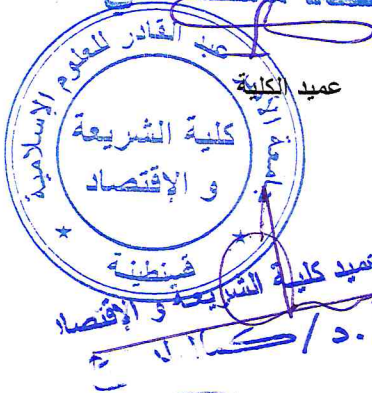 عميد الكلية
جامعة الأمير عبد القادر للعلوم الإسلامية
كلية الشريعة
و الإقتصاد
قسنطينة
عميد كلية الشريعة و الإقتصاد
د /